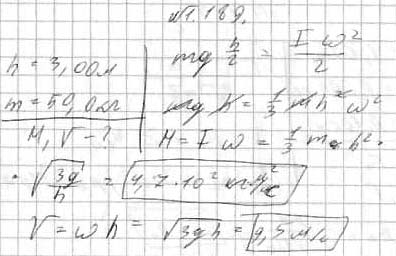 №1.189.
h = 3,00м
m = 50,0кг
M, V - ?
mg h/2 = Iω²/2
mg h = 1/3 mh²ω²
M = Iω = 1/3 m h² ·
· √(3g/h) = 4,7·10² кг м²/с
V = ωh = √(3gh) = 9,5 м/с